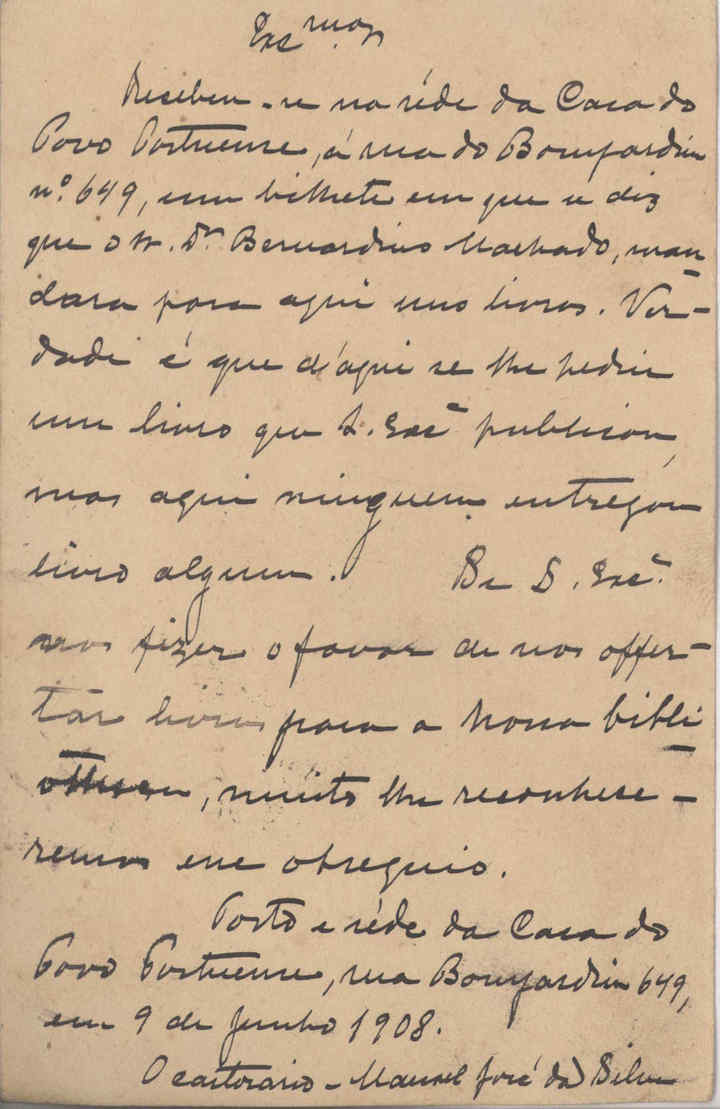 Exc.mos
Recebeu-se na séde da Casa do
Povo Portuense, á rua do Bomjardim
nº 649, um bilhete em que se diz
que o sr. Dr Bernardino Machado, man-
dara para aqui uns livros. Ver-
dade é que d'aqui se lhe pediu
um livro que S. Excª publicou,
mas aqui ninguem entregou
livro algum. Se S. Excª
nos fizer o favor de nos offer-
tar livros para a nossa bibli-
otheca, muito lhe reconhece-
remos esse obsequio.
Porto e séde da Casa do
Povo Portuense, rua Bomjardim 649,
em 9 de Junho 1908.
O cartorario - Manuel José da Silva